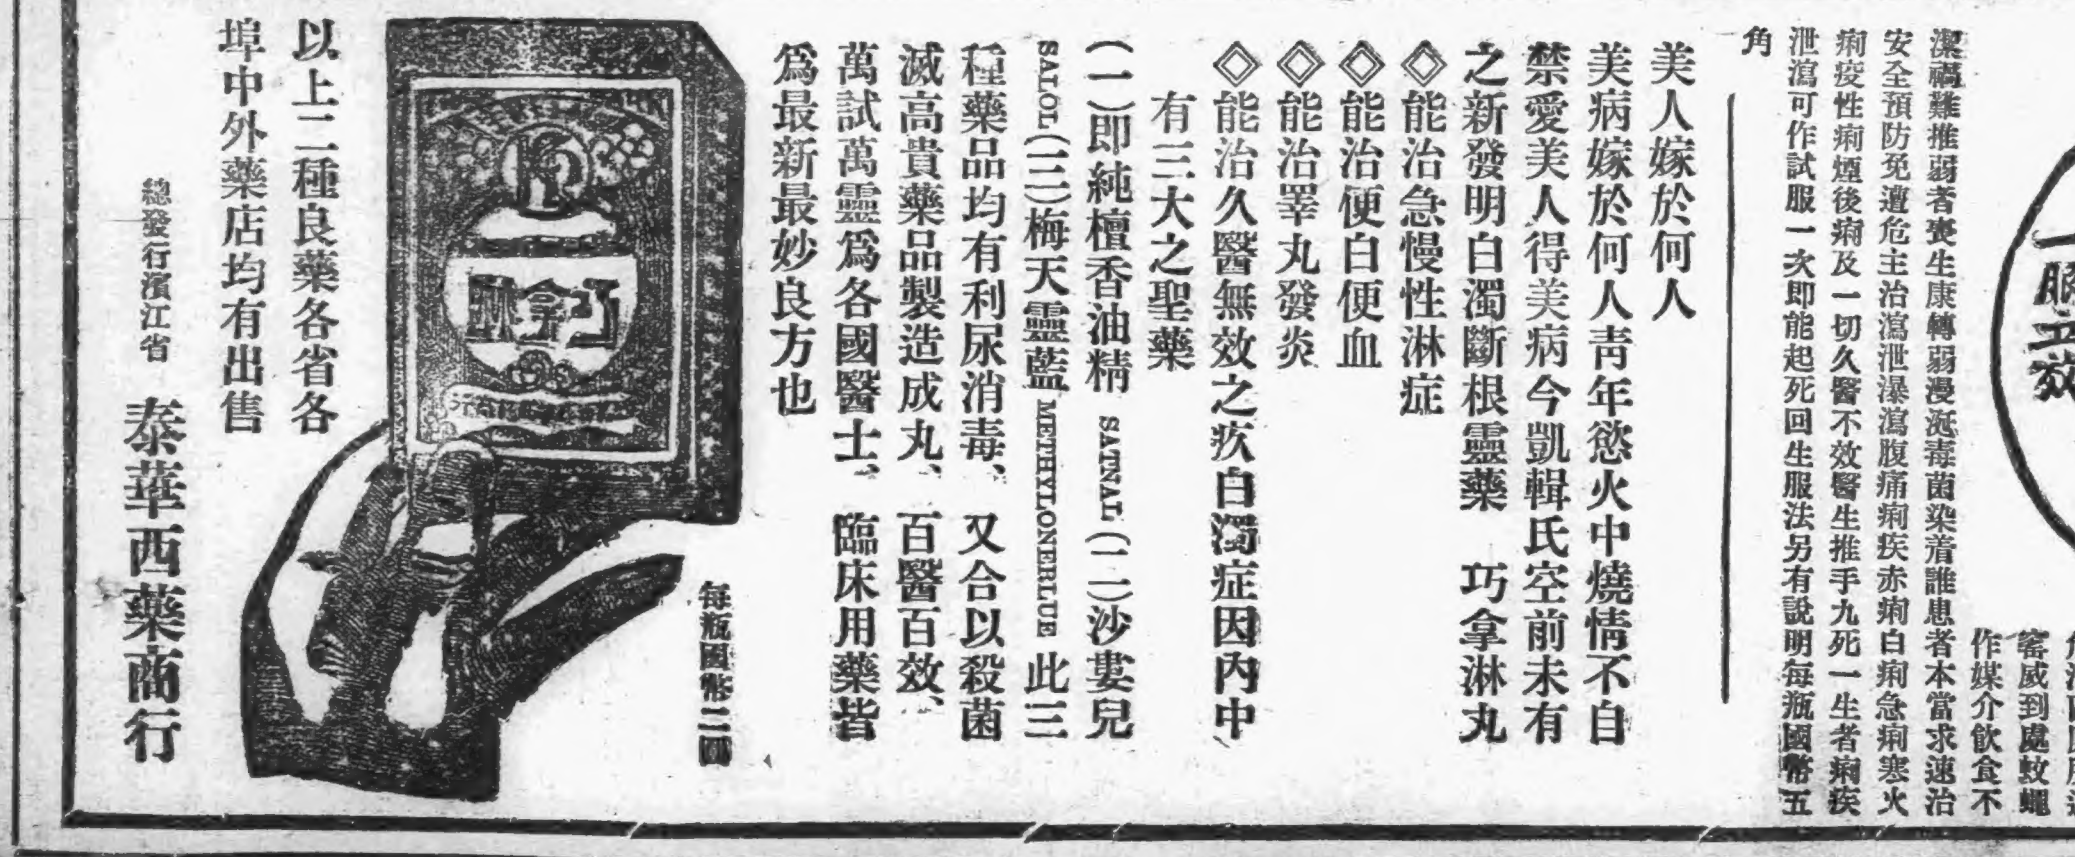 一服立效
窰威到處蚊蠅
作媒介飲食不
潔禍難推弱者喪生康轉弱漫涎毒菌染着誰患者本當求速治
安全預防免遭危主治瀉泄瀑瀉腹痛痢疾赤痢白痢急痢寒火
痢疫性痢煙後痢及一切久醫不效醫生推手九死一生者痢疾
泄瀉可作試服一次即能起死回生服法另有說明每瓶國幣五
角
美人嫁於何人
美病嫁於何人靑年慾火中燒情不自
禁愛美人得美病今凱輯氏空前未有
之新發明白濁斷根靈藥 巧拿淋丸
◇能治急慢性淋症
◇能治便白便血
◇能治睪丸發炎
◇能治久醫無效之疚白濁症因內中
有三大之聖藥
(一)即純檀香油精 SATNAL (二)沙婁兒
SALOL (三)梅天靈藍 METHYLONERLUE 此三
種藥品均有利尿消毒、又合以殺菌
滅高貴藥品製造成丸、百醫百效、
萬試萬靈爲各國醫士、臨床用藥皆
爲最新最妙良方也
每瓶國幣二圓
巧拿淋
以上二種良藥各省各
埠中外藥店均有出售
總發行濱江省 泰華西藥商行